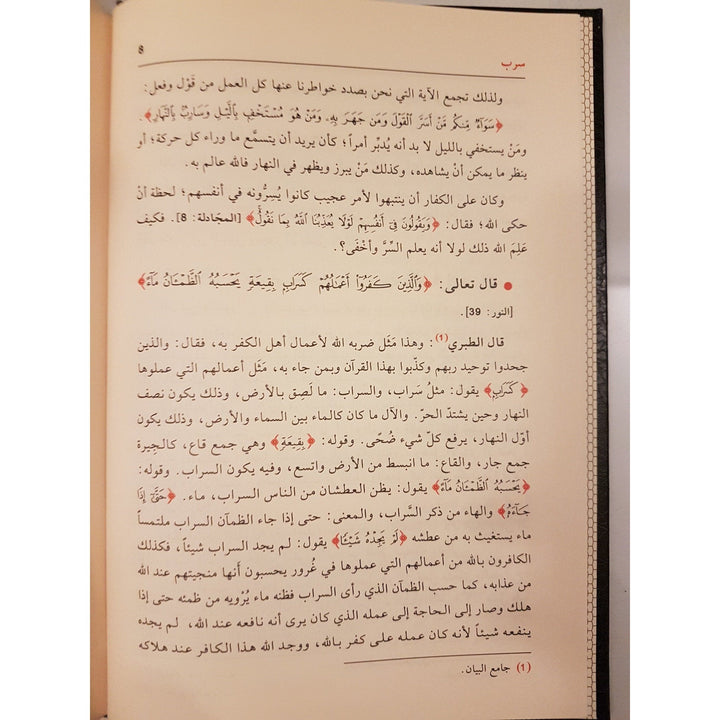 سرب 8
ولذلك تجمع الآية التي نحن بصدد خواطرنا عنها كل العمل من قَوْل وفعل:
﴿سَوَآءٌ مِّنكُم مَّنْ أَسَرَّ ٱلْقَوْلَ وَمَن جَهَرَ بِهِۦ وَمَنْ هُوَ مُسْتَخْفٍۭ بِٱلَّيْلِ وَسَارِبٌۢ بِٱلنَّهَارِ﴾.
ومَنْ يستخفي بالليل لا بد أنه يُدبِّر أمراً؛ كأن يريد أن يتسمَّع ما وراء كل حركة؛ أو
ينظر ما يمكن أنْ يشاهده، وكذلك مَنْ يبرز ويظهر في النهار فالله عالم به.
وكان على الكفار أن ينتبهوا لأمر عجيب كانوا يُسِرُّونه في أنفسهم؛ لحظة أنْ
حكى الله؛ فقال: ﴿وَيَقُولُونَ فِىٓ أَنفُسِهِمْ لَوْلَا يُعَذِّبُنَا ٱللَّهُ بِمَا نَقُولُ﴾ [المجَادلة: 8]. فكيف
عَلِمَ الله ذلك لولا أنه يعلم السِّرَّ وأخْفَى؟.
● قال تعالى: ﴿وَٱلَّذِينَ كَفَرُوٓا۟ أَعْمَٰلُهُمْ كَسَرَابٍۭ بِقِيعَةٍ يَحْسَبُهُ ٱلظَّمْـَٔانُ مَآءً﴾
[النور: 39].
قال الطبري(1): وهذا مَثَل ضربه الله لأعمال أهل الكفر به، فقال: والذين
جحدوا توحيد ربهم وكذّبوا بهذا القرآن وبمن جاء به، مَثَل أعمالهم التي عملوها
﴿كَسَرَابٍ﴾ يقول: مثلُ سَراب، والسراب: ما لَصِق بالأرض، وذلك يكون نصف
النهار وحين يشتدّ الحرّ. والآل ما كان كالماء بين السماء والأرض، وذلك يكون
أوّل النهار، يرفع كلّ شيء ضُحًى. وقوله: ﴿بِقِيعَةٍ﴾ وهي جمع قاع، كالجِيرة
جمع جار، والقاع: ما انبسط من الأرض واتسع، وفيه يكون السراب. وقوله:
﴿يَحْسَبُهُ ٱلظَّمْـَٔانُ مَآءً﴾ يقول: يظن العطشان من الناس السراب، ماء. ﴿حَتَّىٰٓ إِذَا
جَآءَهُۥ﴾ والهاء من ذكر السَّراب، والمعنى: حتى إذا جاء الظمآن السراب ملتمساً
ماء يستغيث به من عطشه ﴿لَمْ يَجِدْهُ شَيْـًٔا﴾ يقول: لم يجد السراب شيئاً، فكذلك
الكافرون بالله من أعمالهم التي عملوها في غُرور يحسبون أنها منجيتهم عند الله
من عذابه، كما حسب الظمآن الذي رأى السراب فظنه ماء يُرْويه من ظمئه حتى إذا
هلك وصار إلى الحاجة إلى عمله الذي كان يرى أنه نافعه عند الله، لم يجده
ينفعه شيئاً لأنه كان عمله على كفر بالله، ووجد الله هذا الكافر عند هلاكه
(1) جامع البيان.